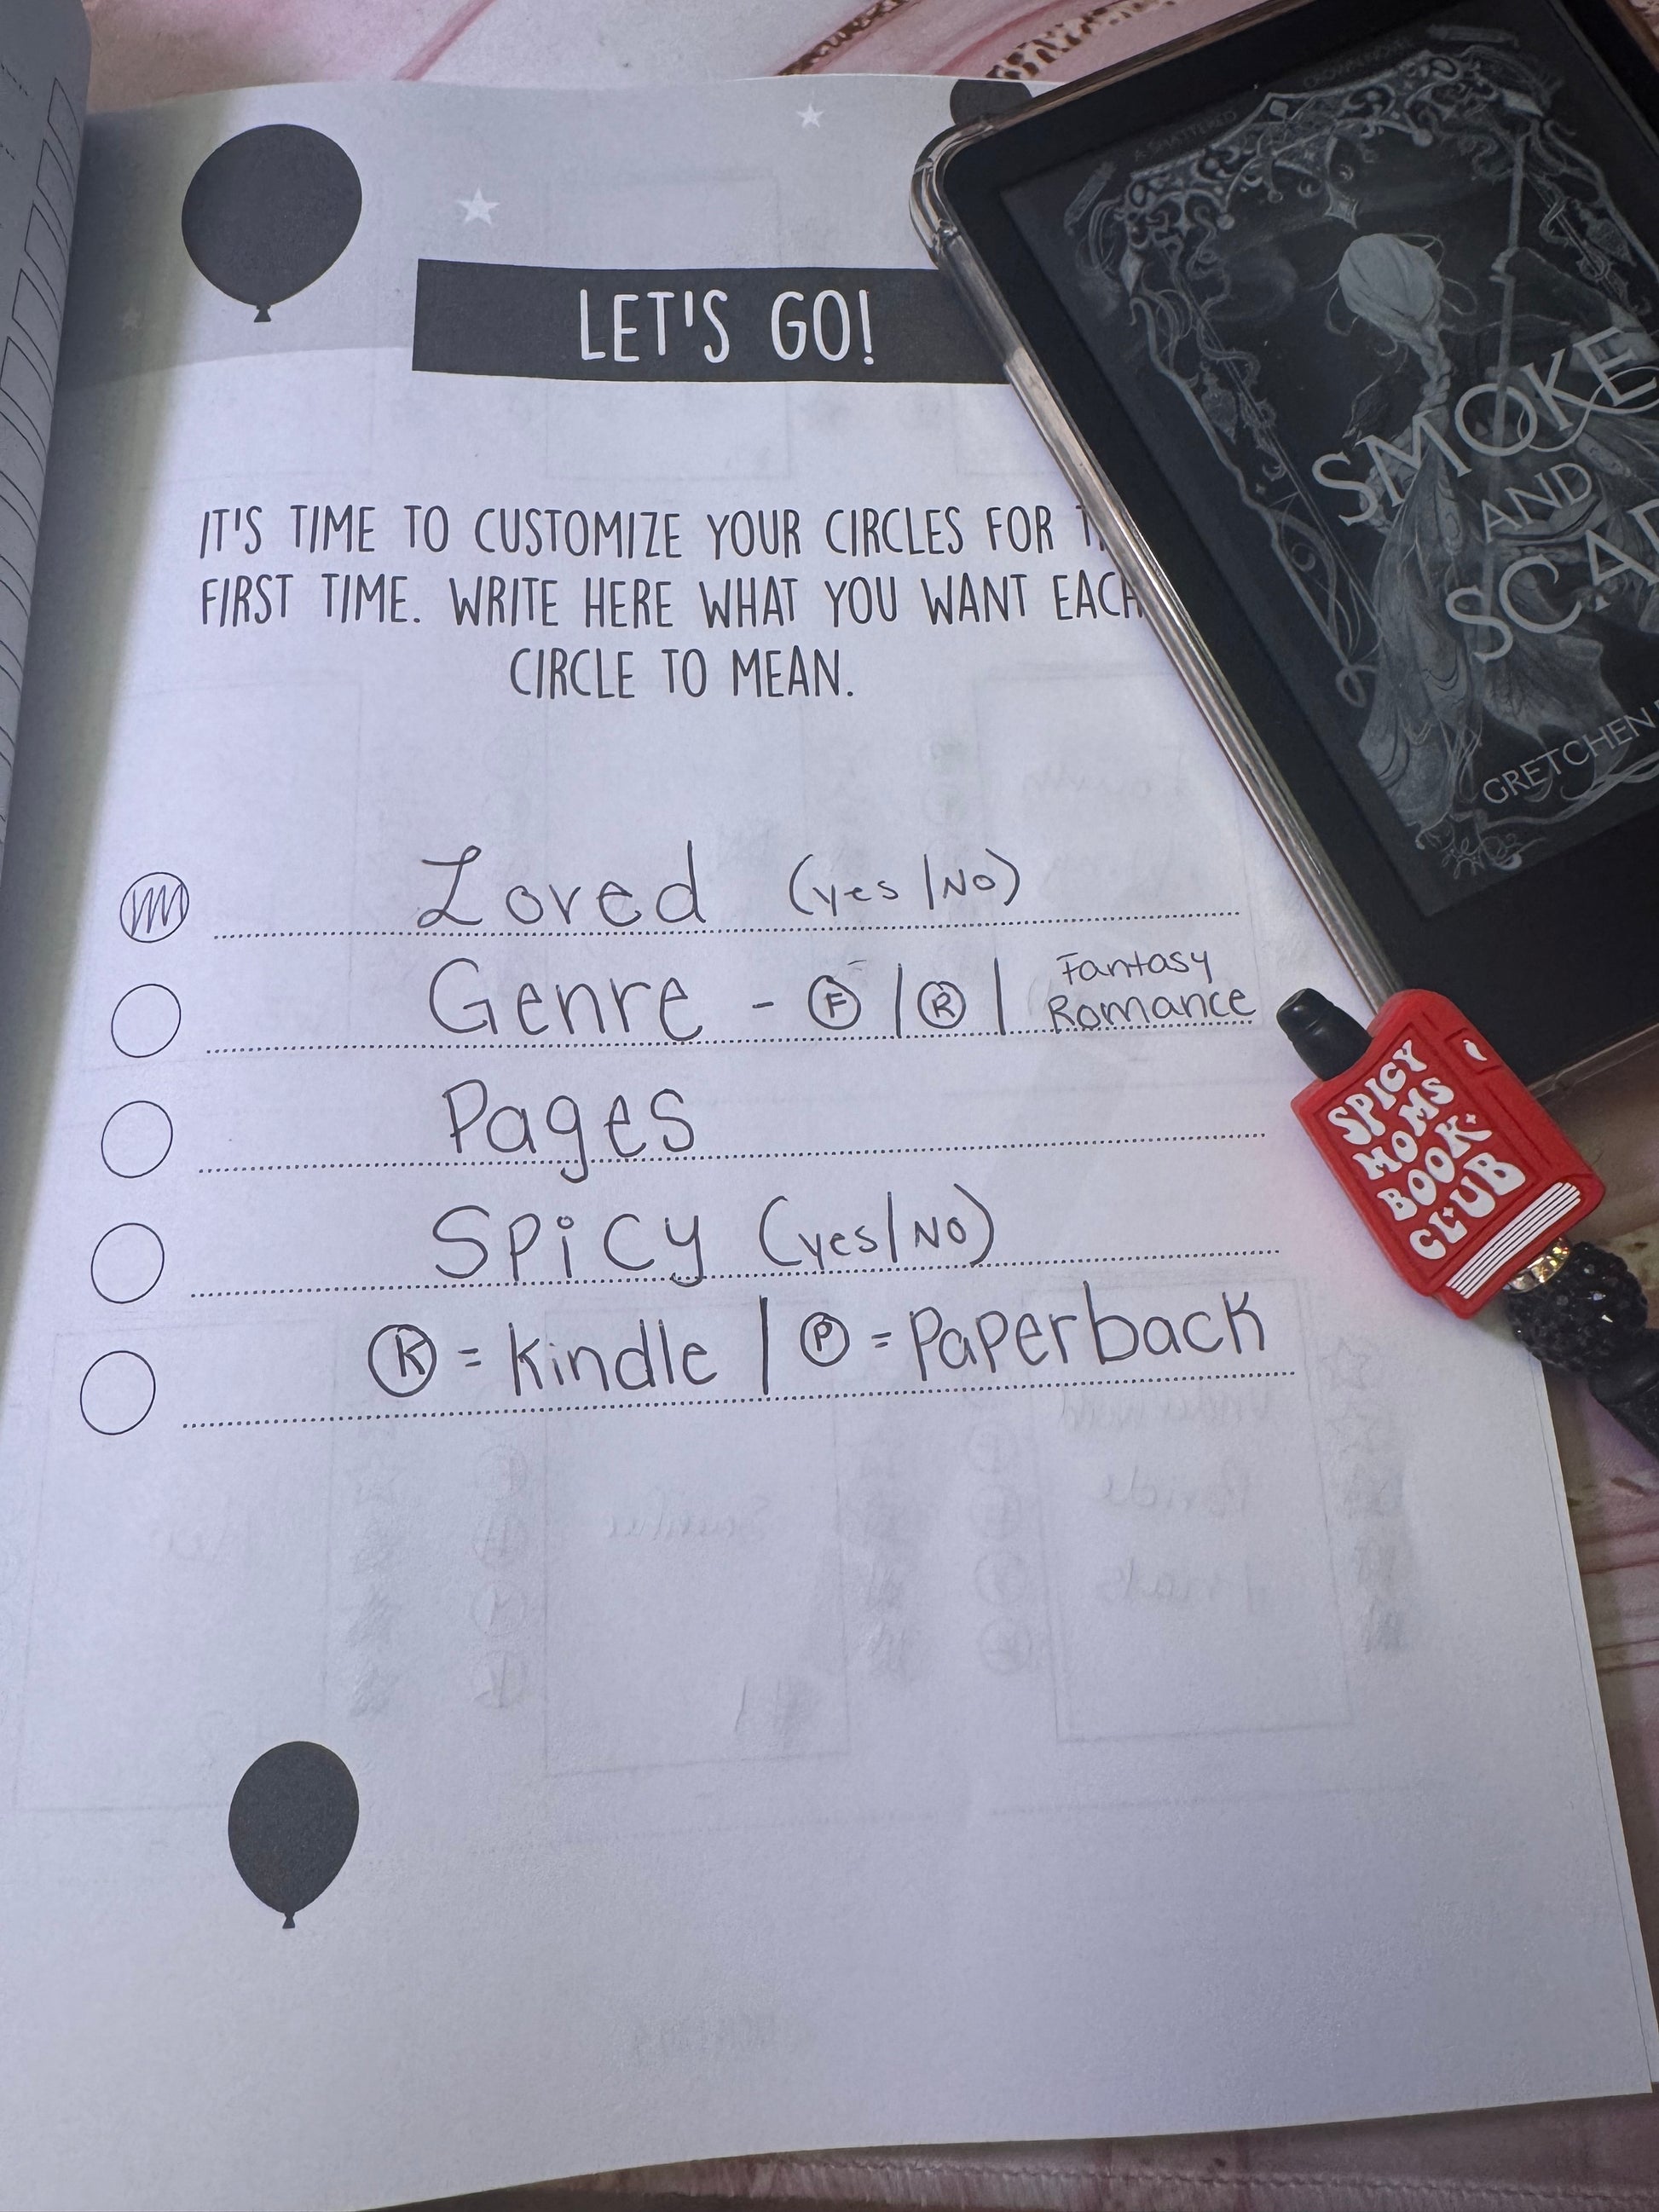 LET'S GO!
IT'S TIME TO CUSTOMIZE YOUR CIRCLES FOR
FIRST TIME. WRITE HERE WHAT YOU WANT EACH
CIRCLE TO MEAN.
Loved (yes/No)
Genre - F / R / Fantasy
Romance
Pages
Spicy (yes/No)
K = kindle / P = Paperback
A SHATTERED
SMOKE
AND
GRETCHEN
SPICY
MOMS
BOOK
CLUB